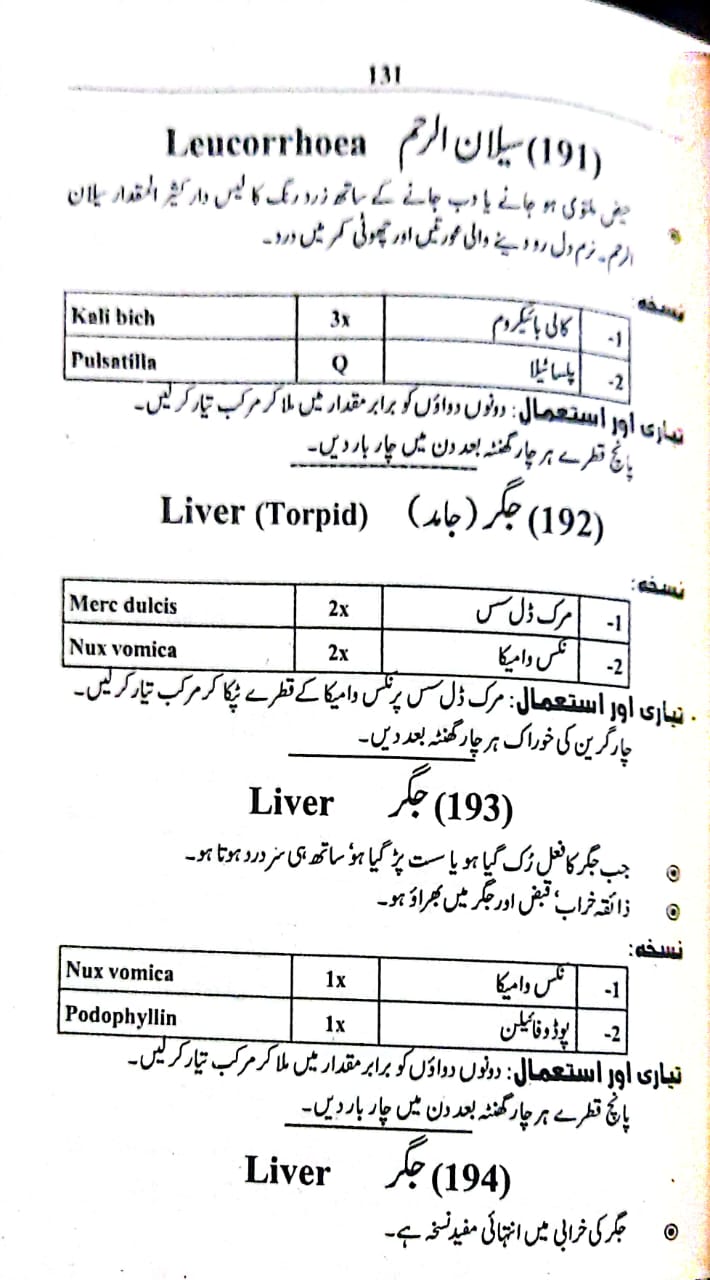 131
(191) سیلان الرحم Leucorrhoea
حیض ملتوی ہو جانے یا دب جانے کے ساتھ زرد رنگ کا لیس دار کثیر المقدار سیلان
الرحم۔ نرم دل رو دینے والی عورتیں اور چھوٹی کمر میں درد۔
نسخہ:
-1 کالی بائیکروم 3x Kali bich
-2 پلساٹیلا Q Pulsatilla
تیاری اور استعمال: دونوں دواؤں کو برابر مقدار میں ملا کر مرکب تیار کر لیں۔
پانچ قطرے ہر چار گھنٹہ بعد دن میں چار بار دیں۔
(192) جگر (جامد) Liver (Torpid)
نسخہ:
-1 مرک ڈل سس 2x Merc dulcis
-2 نکس وامیکا 2x Nux vomica
تیاری اور استعمال: مرک ڈل سس پر نکس وامیکا کے قطرے ٹپکا کر مرکب تیار کر لیں۔
چار گرین کی خوراک ہر چار گھنٹہ بعد دیں۔
(193) جگر Liver
جب جگر کا فعل رُک گیا ہو یا ست پڑ گیا ہو' ساتھ ہی سر درد ہوتا ہو۔
ذائقہ خراب' قبض اور جگر میں بھراؤ ہو۔
نسخہ:
-1 نکس وامیکا 1x Nux vomica
-2 پوڈوفائیلن 1x Podophyllin
تیاری اور استعمال: دونوں دواؤں کو برابر مقدار میں ملا کر مرکب تیار کر لیں۔
پانچ قطرے ہر چار گھنٹہ بعد دن میں چار بار دیں۔
(194) جگر Liver
جگر کی خرابی میں انتہائی مفید نسخہ ہے۔